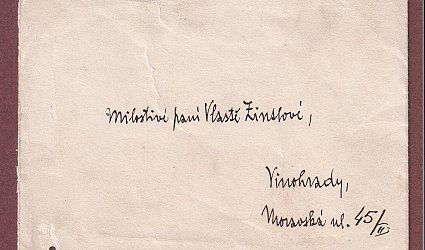 Milostivé paní Vlastě Zinslové,
Vinohrady,
Moravská ul. 45/II.